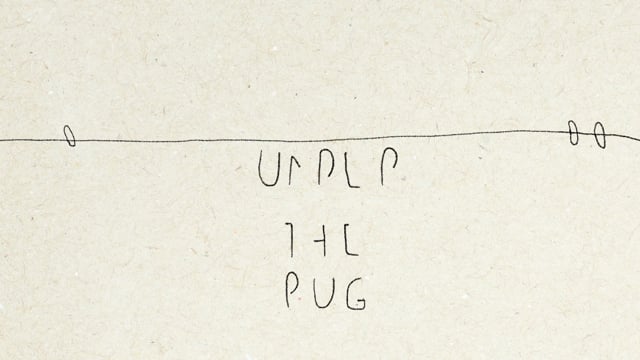 UNDER
THE
PUG